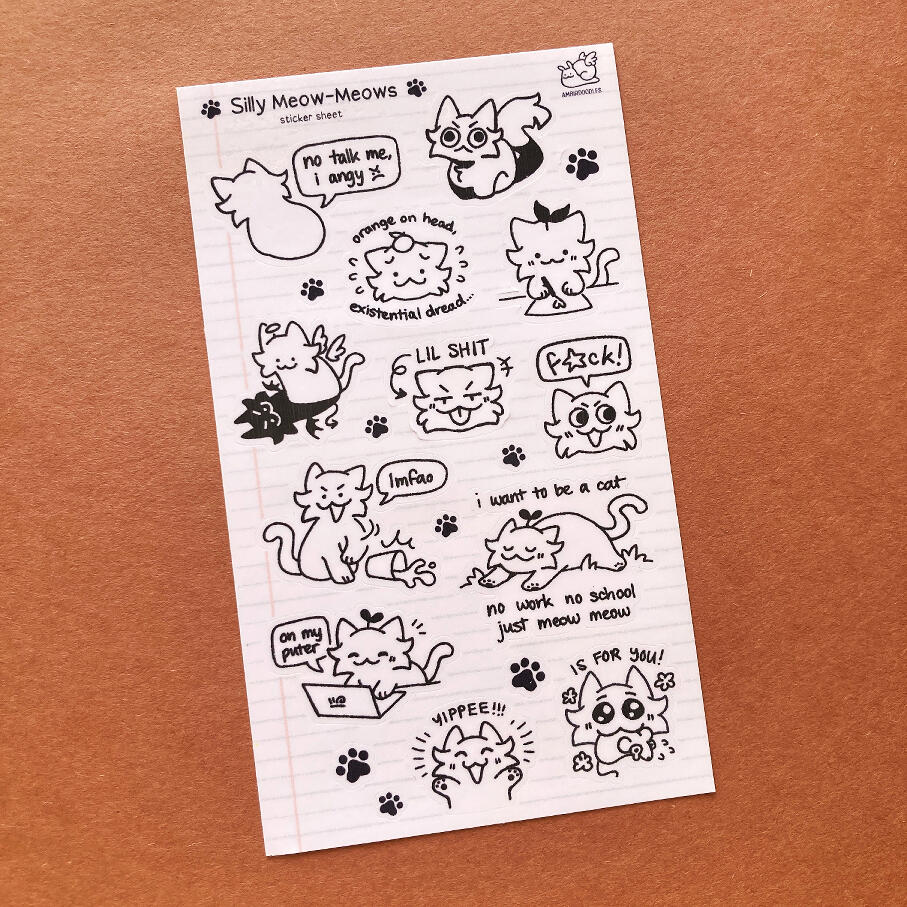 Silly Meow-Meows
sticker sheet
AMBIRDOODLES
no talk me,
i angy
orange on head,
existential dread...
LIL SHIT
f☆ck!
lmfao
i want to be a cat
no work no school
just meow meow
on my
puter
YIPPEE!!!
IS FOR YOU!